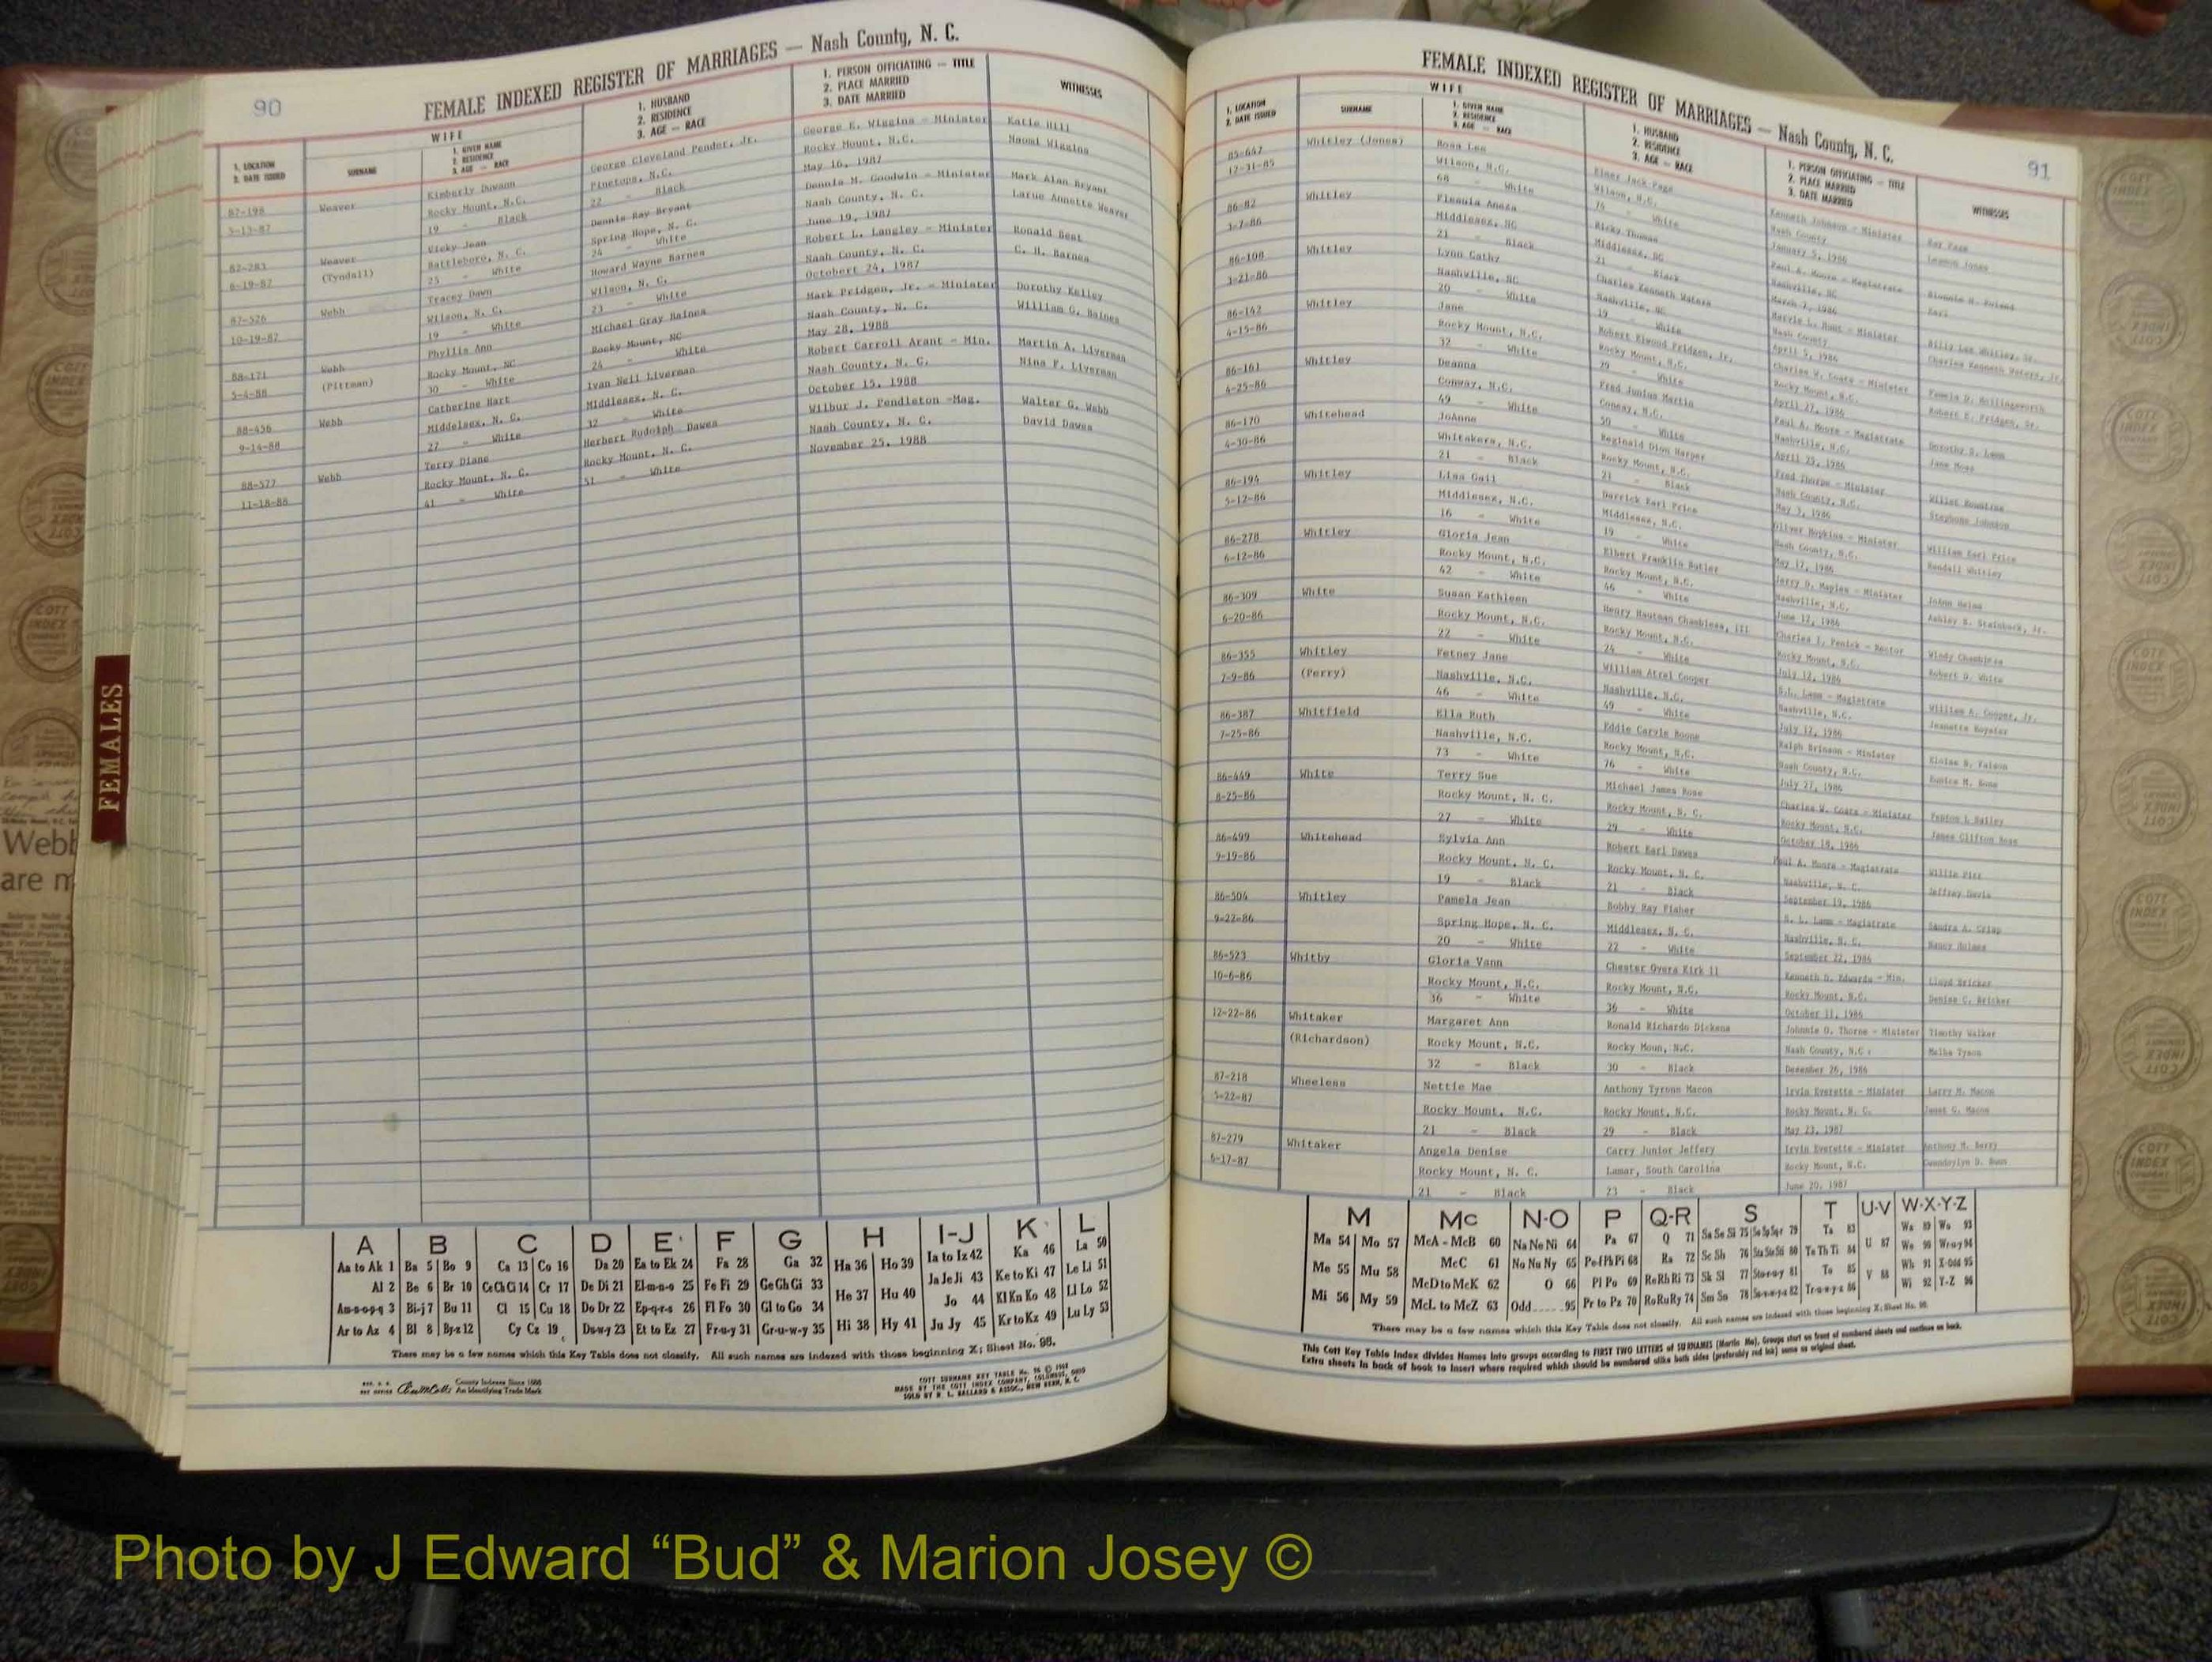 90
FEMALE INDEXED REGISTER OF MARRIAGES — Nash County, N. C.
1. LOCATION
2. DATE ISSUED
WIFE
SURNAME
1. GIVEN NAME
2. RESIDENCE
3. AGE — RACE
1. HUSBAND
2. RESIDENCE
3. AGE — RACE
1. PERSON OFFICIATING — TITLE
2. PLACE MARRIED
3. DATE MARRIED
WITNESSES
87-198 Weaver Kimberly Duwann George Cleveland Pender, Jr. George E. Wiggins - Minister Katie Hill
5-13-87 Rocky Mount, N.C. Pinetops, N.C. Rocky Mount, N.C. Naomi Wiggins
19 - Black 22 - Black May 16, 1987
87-283 Weaver Vicky Jean Dennis Ray Bryant Dennis M. Goodwin - Minister Mark Alan Bryant
6-19-87 (Tyndall) Battleboro, N. C. Spring Hope, N. C. Nash County, N. C. Larue Annette Weaver
25 - White 24 - White June 19, 1987
87-526 Webb Tracey Dawn Howard Wayne Barnes Robert L. Langley - Minister Ronald Best
10-19-87 Wilson, N. C. Wilson, N. C. Nash County, N. C. C. H. Barnes
19 - White 23 - White Octobert 24, 1987
88-171 Webb Phyllis Ann Michael Gray Baines Mark Pridgen, Jr. - Minister Dorothy Kelley
5-4-88 (Pittman) Rocky Mount, NC Rocky Mount, NC Nash County, N. C. William G. Baines
30 - White 24 - White May 28, 1988
88-456 Webb Catherine Hart Ivan Neil Liverman Robert Carroll Arant - Min. Martin A. Liverman
9-14-88 Middelsex, N. C. Middlesex, N. C. Nash County, N. C. Nina F. Liverman
27 - White 32 - White October 15, 1988
88-577 Webb Terry Diane Herbert Rudolph Dawes Wilbur J. Pendleton -Mag. Walter G. Webb
11-18-88 Rocky Mount, N. C. Rocky Mount, N. C. Nash County, N. C. David Dawes
41 - White 51 - White November 25, 1988
FEMALES
Webb
are m
A B C D E F G H I-J K L
Aa to Ak 1 Ba 5 Bo 9 Ca 13 Co 16 Da 20 Ea to Ek 24 Fa 28 Ga 32 Ha 36 Ho 39 Ia to Iz 42 Ka 46 La 50
Al 2 Be 6 Br 10 Ce Ch Ci 14 Cr 17 De Di 21 El-m-n-o 25 Fe Fi 29 Ge Gh Gi 33 He 37 Hu 40 Ja Je Ji 43 Ke to Ki 47 Le Li 51
Am-n-o-p-q 3 Bi-j 7 Bu 11 Cl 15 Cu 18 Do Dr 22 Ep-q-r-s 26 Fl Fo 30 Gl to Go 34 Jo 44 Kl Kn Ko 48 Ll Lo 52
Ar to Az 4 Bl 8 By-z 12 Cy Cz 19 Du-w-y 23 Et to Ez 27 Fr-u-y 31 Gr-u-w-y 35 Hi 38 Hy 41 Ju Jy 45 Kr to Kz 49 Lu Ly 53
There may be a few names which this Key Table does not classify. All such names are indexed with those beginning X; Sheet No. 96.
County Indexes Since 1888
An Identifying Trade Mark
COTT SURNAME KEY TABLE No. 96 ©
MADE BY THE COTT INDEX COMPANY, COLUMBUS, OHIO
SOLD BY O. L. BALLARD & ASSOC., NEW BERN, N. C.
91
FEMALE INDEXED REGISTER OF MARRIAGES — Nash County, N. C.
1. LOCATION
2. DATE ISSUED
WIFE
SURNAME
1. GIVEN NAME
2. RESIDENCE
3. AGE — RACE
1. HUSBAND
2. RESIDENCE
3. AGE — RACE
1. PERSON OFFICIATING — TITLE
2. PLACE MARRIED
3. DATE MARRIED
WITNESSES
85-647 Whitley (Jones) Rosa Lee Elmer Jack Page Kenneth Johnson - Minister Ray Page
12-31-85 Wilson, N.C. Wilson, N.C. Nash County Leamon Jones
68 - White 74 - White January 5, 1986
86-82 Whitley Ricky Thomas Paul A. Moore - Magistrate
3-7-86 Middlesex, NC Middlesex, NC Nashville, NC
21 - Black 21 - Black March 7, 1986
86-108 Whitley Lynn Cathy Charles Kenneth Waters Harvie L. Hunt - Minister Billy Lee Whitley, Sr.
3-21-86 Nashville, NC Nashville, NC Nash County Charles Kenneth Waters, Jr.
20 - White 19 - White April 5, 1986
86-142 Whitley Jane Robert Elwood Pridgen, Jr. Charles W. Coats - Minister Pamela D. Hollingsworth
4-15-86 Rocky Mount, N.C. Rocky Mount, N.C. Rocky Mount, N.C. Robert E. Pridgen, Sr.
32 - White 29 - White April 27, 1986
86-161 Whitley Deanna Fred Junius Martin Paul A. Moore - Magistrate Dorothy S. Lamm
4-25-86 Conway, N.C. Conway, N.C. Nashville, N.C. Jane Moss
49 - White 50 - White April 25, 1986
86-170 Whitehead JoAnne Reginald Dion Harper Fred Thorpe - Minister
4-30-86 Whitakers, N.C. Rocky Mount, N.C. Nash County, N.C. Stephone Johnson
21 - Black 21 - Black May 3, 1986
86-194 Whitley Lisa Gail Darrick Earl Price Oliver Hopkins - Minister William Earl Price
5-12-86 Middlesex, N.C. Middlesex, N.C. Nash County, N.C. Randall Whitley
16 - White 19 - White May 17, 1986
86-278 Whitley Gloria Jean Elbert Franklin Butler Jerry D. Maples - Minister JoAnn Helms
6-12-86 Rocky Mount, N.C. Rocky Mount, N.C. Nashville, N.C. Ashley B. Stainback, Jr.
42 - White 46 - White June 12, 1986
86-309 White Susan Kathleen Henry Hautman Chambless, III Charles I. Penick - Rector Windy Chambless
6-20-86 Rocky Mount, N.C. Rocky Mount, N.C. Rocky Mount, N.C. Robert D. White
22 - White 24 - White July 12, 1986
86-355 Whitley Fetney Jane William Atrel Cooper S.L. Lamm - Magistrate William A. Cooper, Jr.
7-9-86 (Perry) Nashville, N.C. Nashville, N.C. Nashville, N.C. Jeanette Boyster
46 - White 49 - White July 12, 1986
86-387 Whitfield Ella Ruth Eddie Caryle Boone Ralph Brinson - Minister Eloise B. Faison
7-25-86 Nashville, N.C. Rocky Mount, N.C. Nash County, N.C. Eunice M. Bone
73 - White 76 - White July 27, 1986
86-449 White Terry Sue Michael James Rose Charles W. Coats - Minister Fenton L Bailey
8-25-86 Rocky Mount, N. C. Rocky Mount, N. C. Rocky Mount, N.C. James Clifton Rose
27 - White 29 - White October 18, 1986
86-499 Whitehead Sylvia Ann Robert Earl Dawes Paul A. Moore - Magistrate Willie Pitt
9-19-86 Rocky Mount, N. C. Rocky Mount, N. C. Nashville, N. C. Jeffrey Davis
19 - Black 21 - Black September 19, 1986
86-504 Whitley Pamela Jean Bobby Ray Fisher S. L. Lamm - Magistrate Sandra A. Crisp
9-22-86 Spring Hope, N. C. Middlesex, N. C. Nashville, N. C. Nancy Holmes
20 - White 22 - White September 22, 1986
86-523 Whitby Gloria Vann Chester Overa Kirk II Kenneth D. Edwards - Min. Lloyd Bricker
10-6-86 Rocky Mount, N.C. Rocky Mount, N.C. Rocky Mount, N.C. Denise C. Bricker
36 - White 36 - White October 11, 1986
12-22-86 Whitaker Margaret Ann Ronald Richardo Dickens Johnnie O. Thorne - Minister Timothy Walker
(Richardson) Rocky Mount, N.C. Rocky Moun, N.C. Nash County, N.C. Melba Tyson
32 - Black 30 - Black December 26, 1986
87-218 Wheeless Nettie Mae Anthony Tyrone Macon Irvin Everette - Minister Larry M. Macon
5-22-87 Rocky Mount, N.C. Rocky Mount, N.C. Rocky Mount, N. C. Janet G. Macon
21 - Black 29 - Black May 23, 1987
87-279 Whitaker Angela Denise Carry Junior Jeffery Irvin Everette - Minister Anthony M. Berry
6-17-87 Rocky Mount, N. C. Lamar, South Carolina Rocky Mount, N.C. Gwendoylyn D. Bunn
21 - Black 23 - Black June 20, 1987
M Mc N-O P Q-R S T U-V W-X-Y-Z
Ma 54 Mo 57 McA - McB 60 Na Ne Ni 64 Pa 67 Q 71 Sa Se Si 75 So Sp Sq-r 79 Ta 83 U 87 Wa 89 Wo 93
Me 55 Mu 58 McC 61 No Nu Ny 65 Pe-f Ph Pi 68 Ra 72 Sc Sh 76 Sta Ste Sti 80 Te Th Ti 84 We 90 Wr-o-y 94
McD to McK 62 O 66 Pl Po 69 Re Rh Ri 73 Sk Sl 77 Sto-r-u-y 81 To 85 V 88 Wh 91 X-Odd 95
Mi 56 My 59 McL to McZ 63 Odd......95 Pr to Pz 70 Ro Ru Ry 74 Sm Sn 78 Su-v-w-y-z 82 Tr-u-w-y-z 86 Wi 92 Y-Z 96
There may be a few names which this Key Table does not classify. All such names are indexed with those beginning X; Sheet No. 96.
This Cott Key Table Index divides Names into groups according to FIRST TWO LETTERS of SURNAMES (Martin Ma). Groups start on front of numbered sheets and continue on back.
Extra sheets in back of book to insert where required which should be numbered alike both sides (preferably red ink) same as original sheet.
Photo by J Edward “Bud” & Marion Josey ©